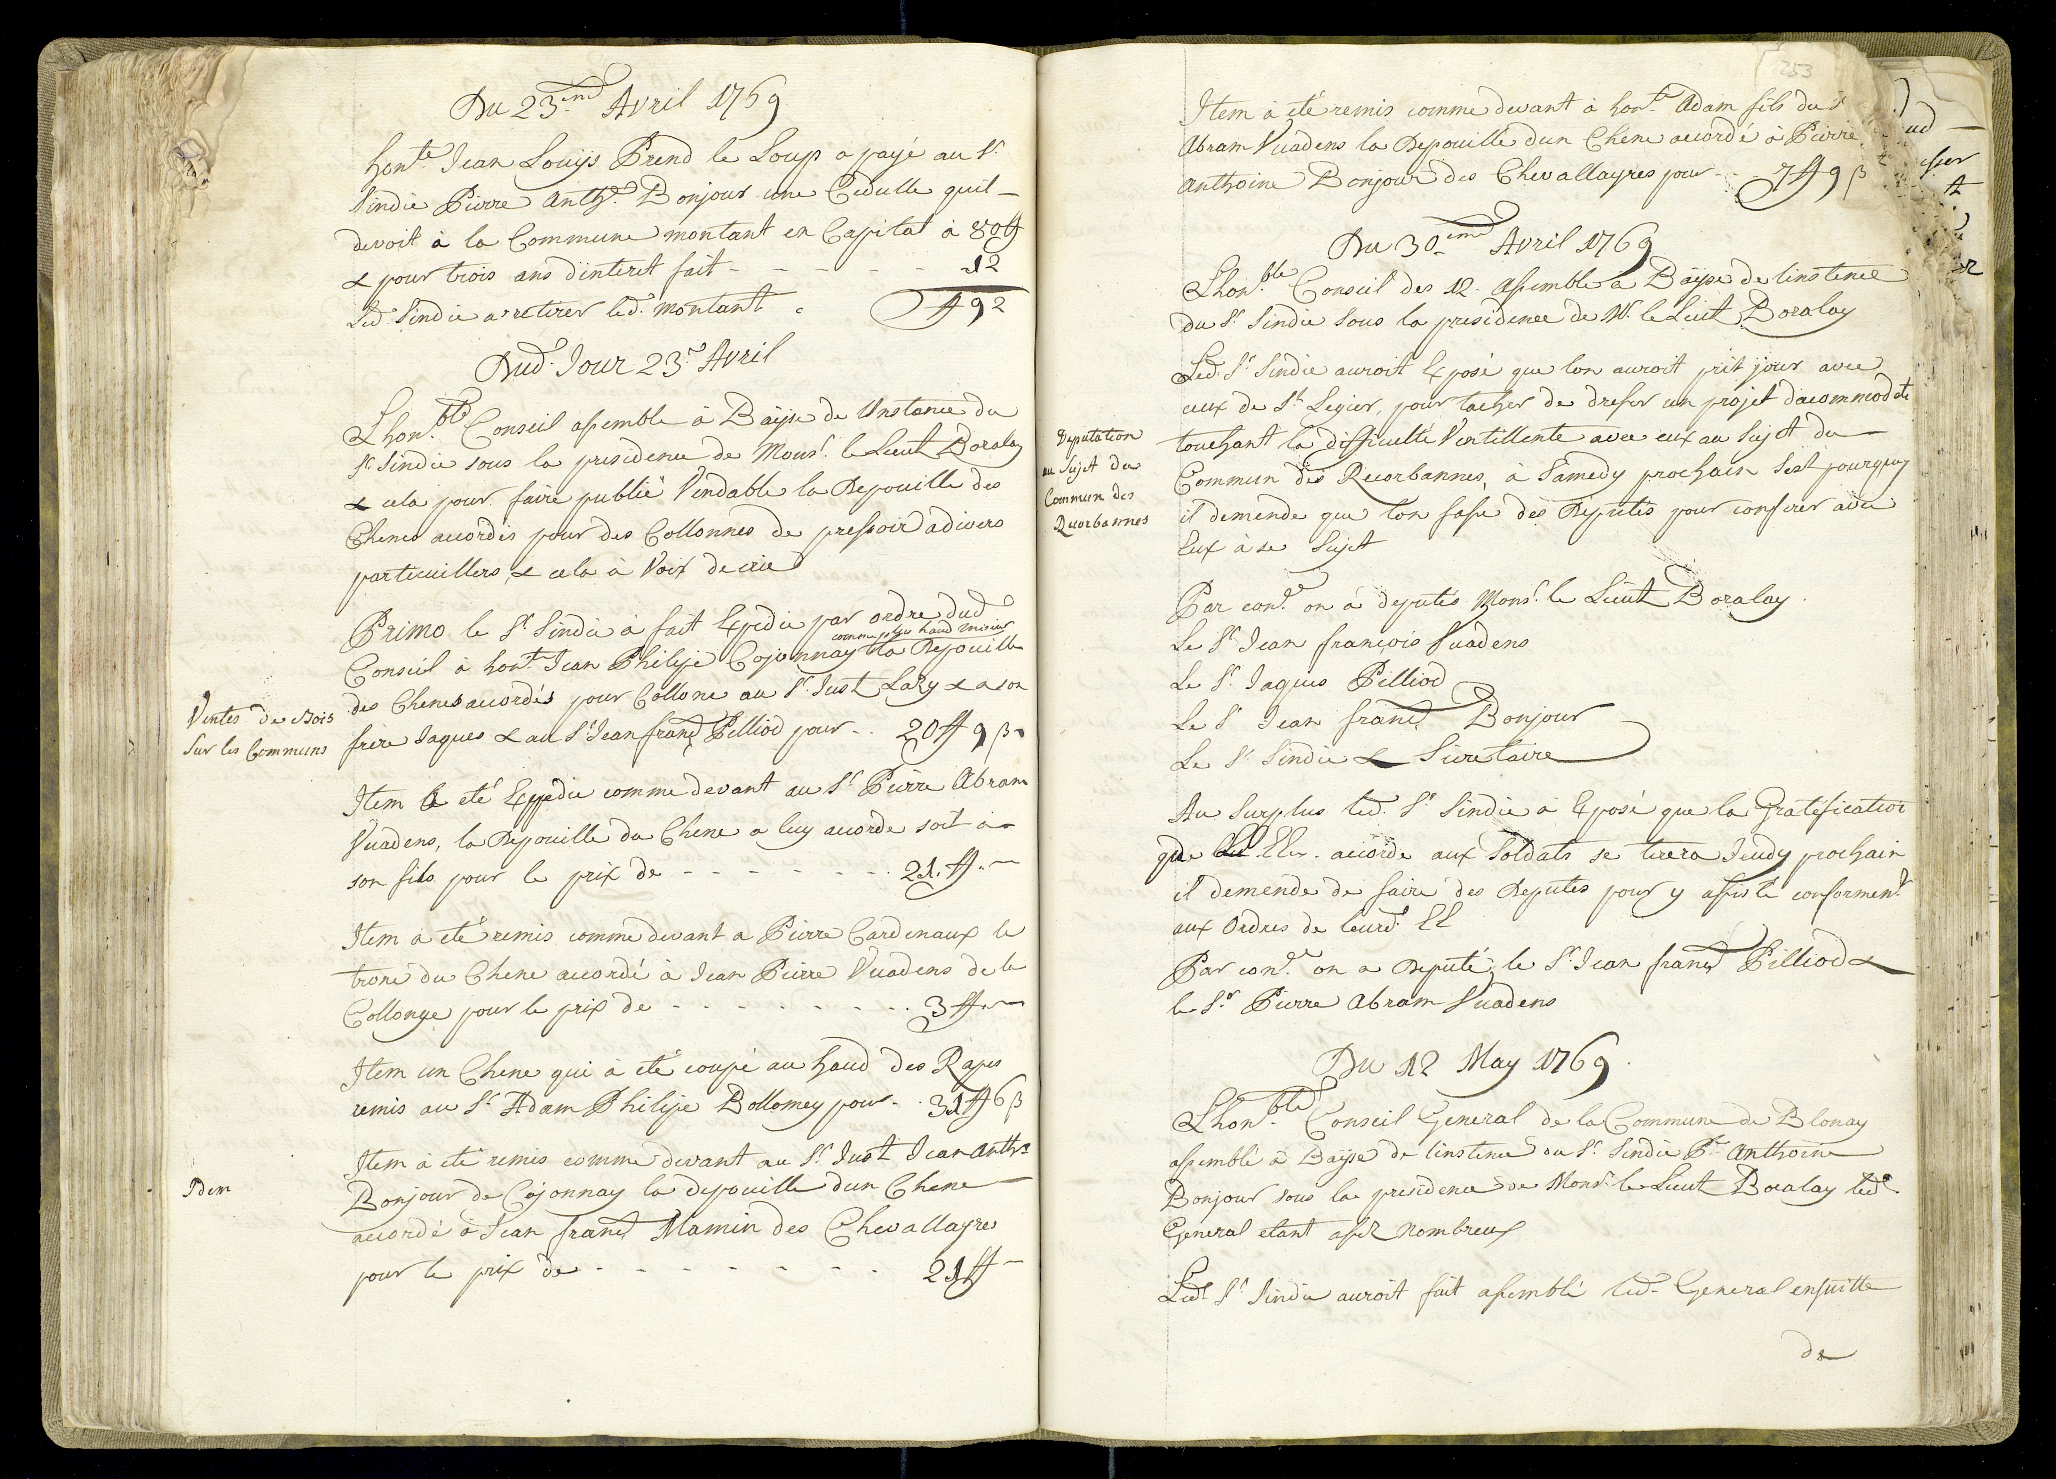 Du 23.eme Avril 1769
hon.te Jean Louijs Prend le Loup a payé au Sr.
Sindic Pierre Anth.e Bonjour une Cedulle quil
devoit à la Commune montant en Capital à 80 ff
& pour trois ans dinteret fait - - - - - 12
Led. Sindic a retirer led. montant ff 92
Dud. Jour 23.e Avril
Lhon.ble Conseil assemble à Baÿse de Instance du
Sr. Sindic sous la presidence de Mons.r le Lieut Boralay
& cela pour faire publié Vendable la Depouille des
Chenes accordés pour des Collonnes de pressoir a divers
particuillers, & cela à Voix de crie
Primo le Sr. Sindic à fait Expedie par ordre dud
comme plus haud miseur
Conseil à hon.te Jean Philipe Cojonnay la Depouille
des Chenes accordés pour Collone au Sr. Just Lazy & a son
Ventes de Bois
sur les Communs
frere Jaques & au Sr. Jean franç Pilliod pour - . 20 ff 9 β
Item a eté Exppedie comme devant au Sr. Pierre Abram
Vuadens, la Depouille du Chene a luy accorde soit à
son fils pour le prix de - - - - - - - . 21. ff. -
Item a eté remis comme devant a Pierre Cardinaux le
tronc du Chene accordé à Jean Pierre Vuadens de la
Collonge pour le prix de - - - - - - - - . 3 ff. -
Item un Chene qui à eté coupé au haud des Rapes
remis au Sr. Adam Philipe Bollomey pour - . 31 ff 6 β
Item à eté remis comme devant au Sr. Just Jean Anth.e
Idem
Bonjour de Cojonnay la depouille dun Chene
accordé à Jean franç Mamin des Chevallayres
pour le prix de - - - - - - - - 21 ff -
253
Item à eté remis comme devant à hon.te Adam fils du S
Abram Vuadens la Depouille dun Chene accordé à Pierre
Anthoine Bonjour des Chevallayres pour - - 7 ff 9 β
Du 30.eme Avril 1769
Lhon.ble Conseil des 12. assemble a Baÿse de linstence
du Sr. Sindic sous la presidence de Mr. le Lieut Boralay
Led. Sr. Sindic auroit Exposé que lon auroit prit jour avec
ceux de St. Legier, pour tacher de dresser un projet dacommodt
Deputation
au Sujet du
Commun des
Recorbannes
touchant la difficulté Ventillente avec eux au Sujet du
Commun des Recorbannes, à Samedy prochain sest pourquoy
il demende que lon fasse des Deputés pour conferer avec
Eux à se Sujet
Par con.e on à deputés Mons.r le Lieut Boralay.
Le Sr. Jean françois Vuadens
Le Sr. Jaques Pilliod
Le Sr Jean franç Bonjour
Le Sr Sindic & Siecretaire
Au Surplus led. Sr Sindic à Exposé que la Gratification
que LLEE. accorde aux Soldats se tirera Jeudy prochain
il demende de faire des Deputés pour y assisté conformen.t
aux Ordres de leurd. EE
Par con.e on a Deputé le Sr. Jean franç Pilliod &
le Sr Pierre Abram Vuadens
Du 12 May 1769.
Lhon.ble Conseil General de la Commune de Blonay
assemblé à Baÿse de linstence du Sr. Sindic Pr. Anthoine
Bonjour sous la presidence de Mons.r le Lieut Boralay led.
General etant assez nombreux
Led. Sr. Sindic auroit fait assemblé led. General ensuitte
de